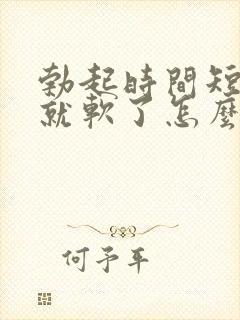 勃起時間短
就軟了怎麼
何予平